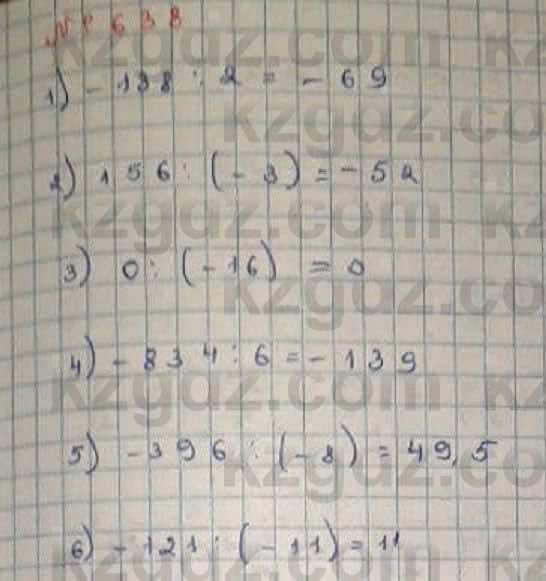 № 638
1) - 138 : 2 = - 69
2) 156 : (- 3) = - 52
3) 0 : (- 16) = 0
4) - 834 : 6 = - 139
5) - 396 : (- 8) = 49,5
6) - 121 : (- 11) = 11
kzgdz.com
kzgdz.com
kzgdz.com
kzgdz.com
kzgdz.com
kzgdz.com
kzgdz.com